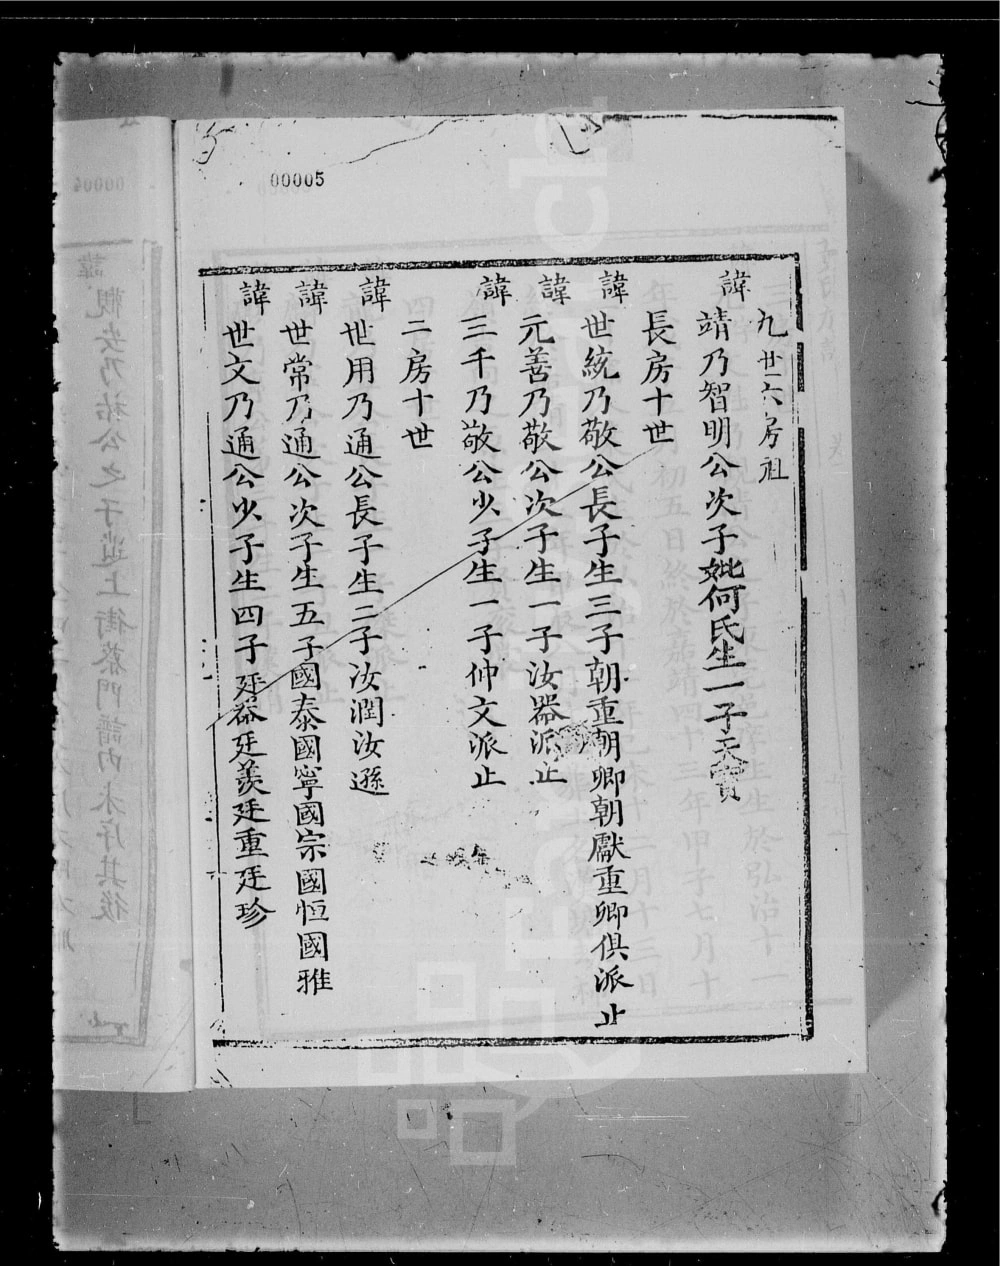 00005
九世六房祖
諱靖乃智明公次子妣何氏生一子天寶
長房十世
諱世統乃敬公長子生三子朝重朝卿朝獻重卿俱派止
諱元善乃敬公次子生一子汝器派止
諱三千乃敬公少子生一子仲文派止
二房十世
諱世用乃通公長子生二子汝潤汝遜
諱世常乃通公次子生五子國泰國寧國宗國恒國雅
諱世文乃通公少子生四子廷裕廷羨廷重廷珍